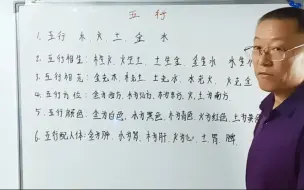 五行
1. 五行 木 火 土 金 水
2. 五行相生: 木生火 火生土 土生金 金生水 水生
3. 五行相克: 金克木 木克土 土克水 水克火 火克金
4. 五行方位: 金为西方 水为北方 木为东方 火、土为南方
5. 五行颜色: 金为白色 水为黑色 木为青色 火为红色 土为黄
6. 五行配人体: 金为肺 水为肾 木为肝 火为心 土胃 脾